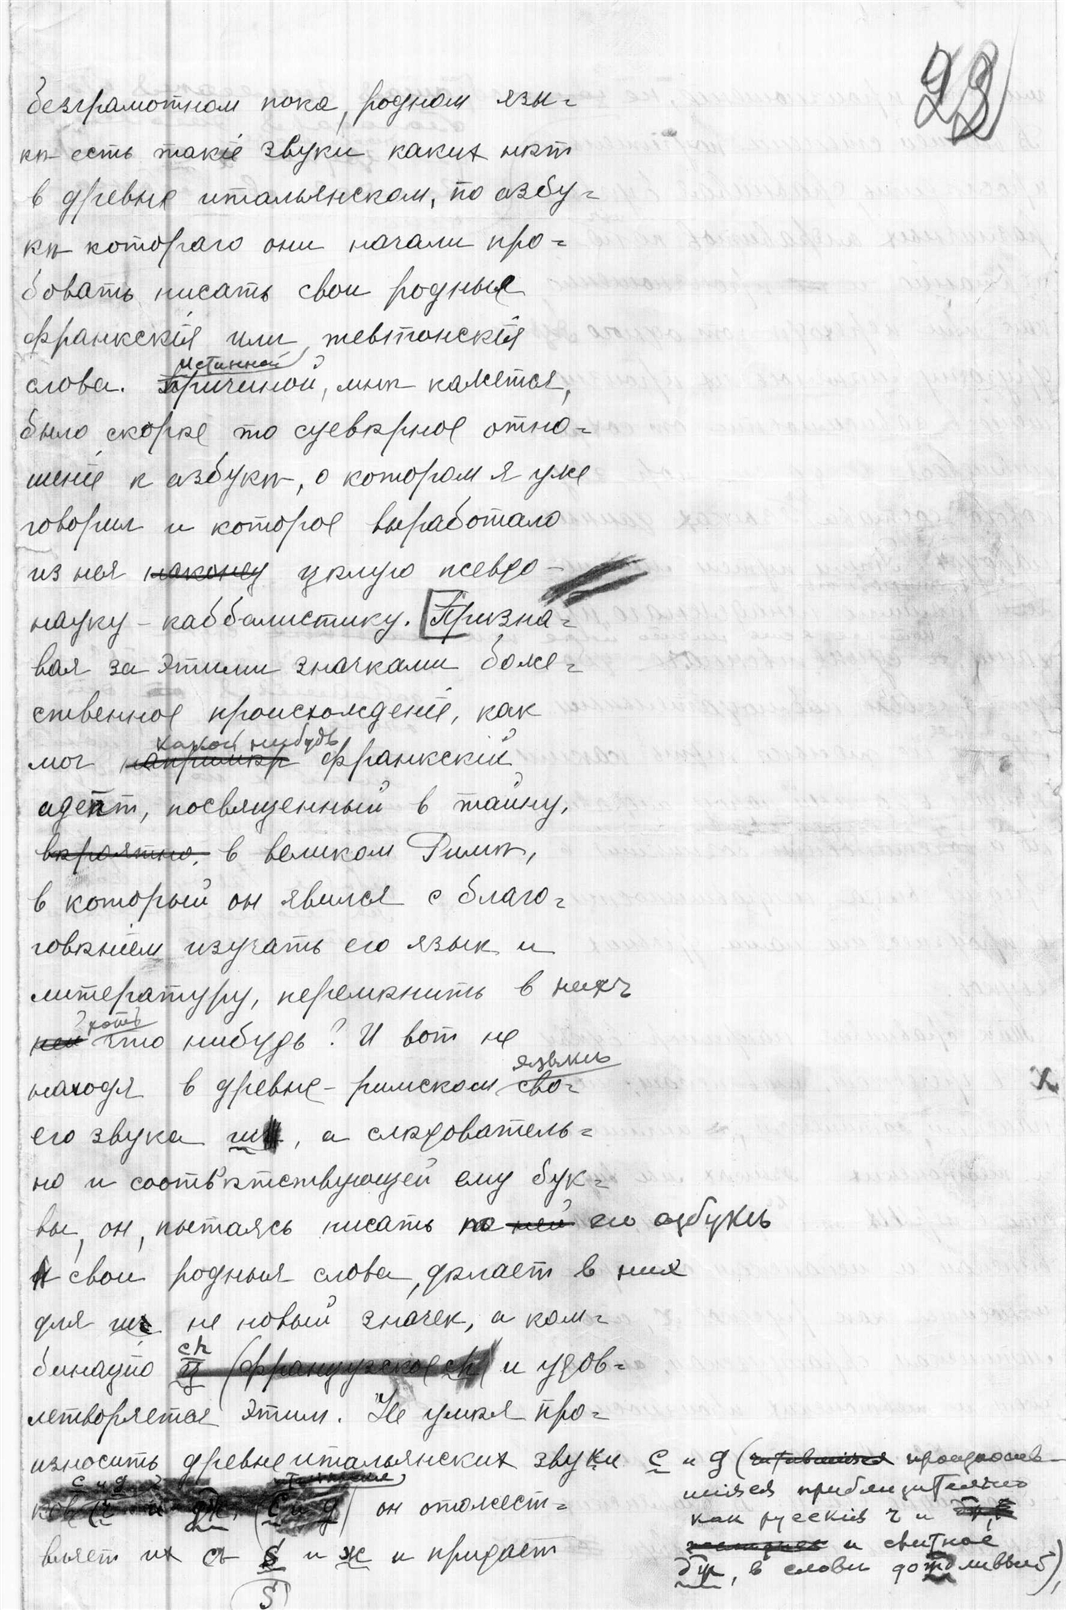 23
безграмотном пока, родном язы=
кѣ есть такіе звуки каких нѣт
в древне итальянском, по азбу=
кѣ котораго они начали про=
бовать писать свои родныя
франкскія или тевтонскія
истинной
слова. Причиной, мнѣ кажется,
было скорѣе то суевѣрное отно=
шеніе к азбукѣ, о котором я уже
говорил и которое выработало
из нея наконец цѣлую псевдо-
науку - каббалистику. [Призна=
вая за этими значками боже=
ственное происхожденіе, как
какой нибудь
мог напримѣр франкскій
адепт, посвященный в тайну,
вѣроятно, в великом Римѣ,
в который он явился с благо=
говѣніем изучать его язык и
литературу, перемѣнить в нихъ
хоть
ней что нибудь? И вот не
языкѣ
находя в древне-римском сво=
его звука ш, а слѣдователь=
но и соотвѣтствующей ему бук=
вы, он, пытаясь писать по ней его азбукѣ
свои родныя слова, дѣлает в них
для ш не новый значек, а ком=
ch
бинацію (французское ch) и удов=
летворяется этим. Не умѣя про=
износить древнеитальянских звуки с и g (произносив-
шіяся приблизительно
как русскія ч и
и слитное
дж, в словѣ дождливый),
с и g
он отожест=
вляет их съ ś и ж и придает
(S)
x